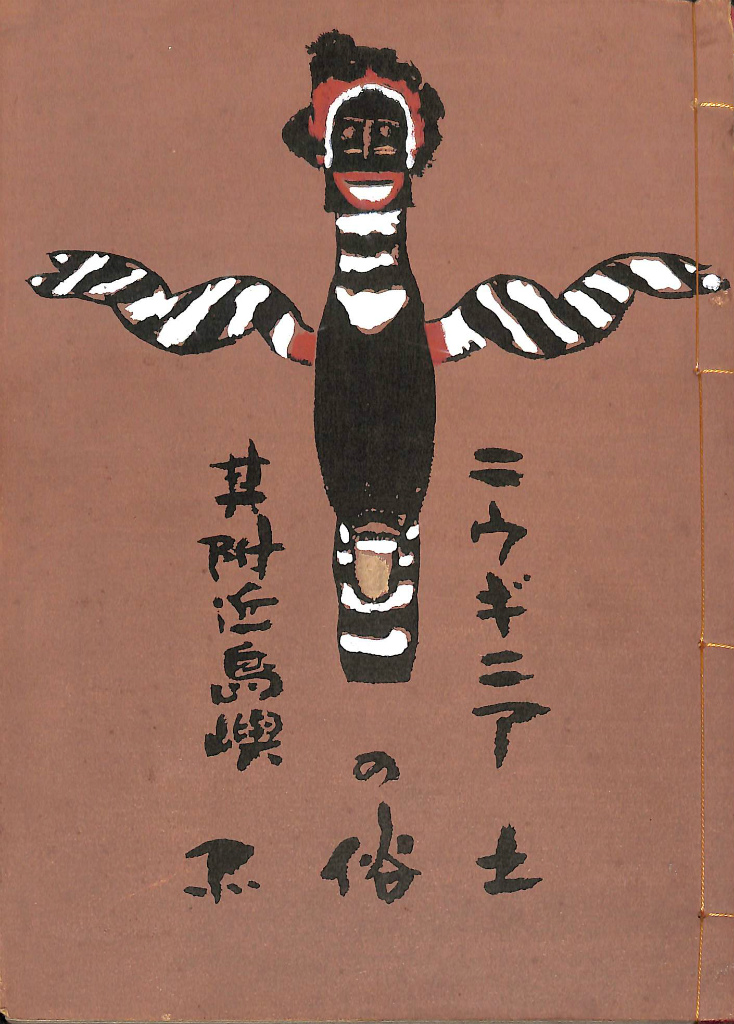 ニウギニア
其附近島嶼
の
土俗品